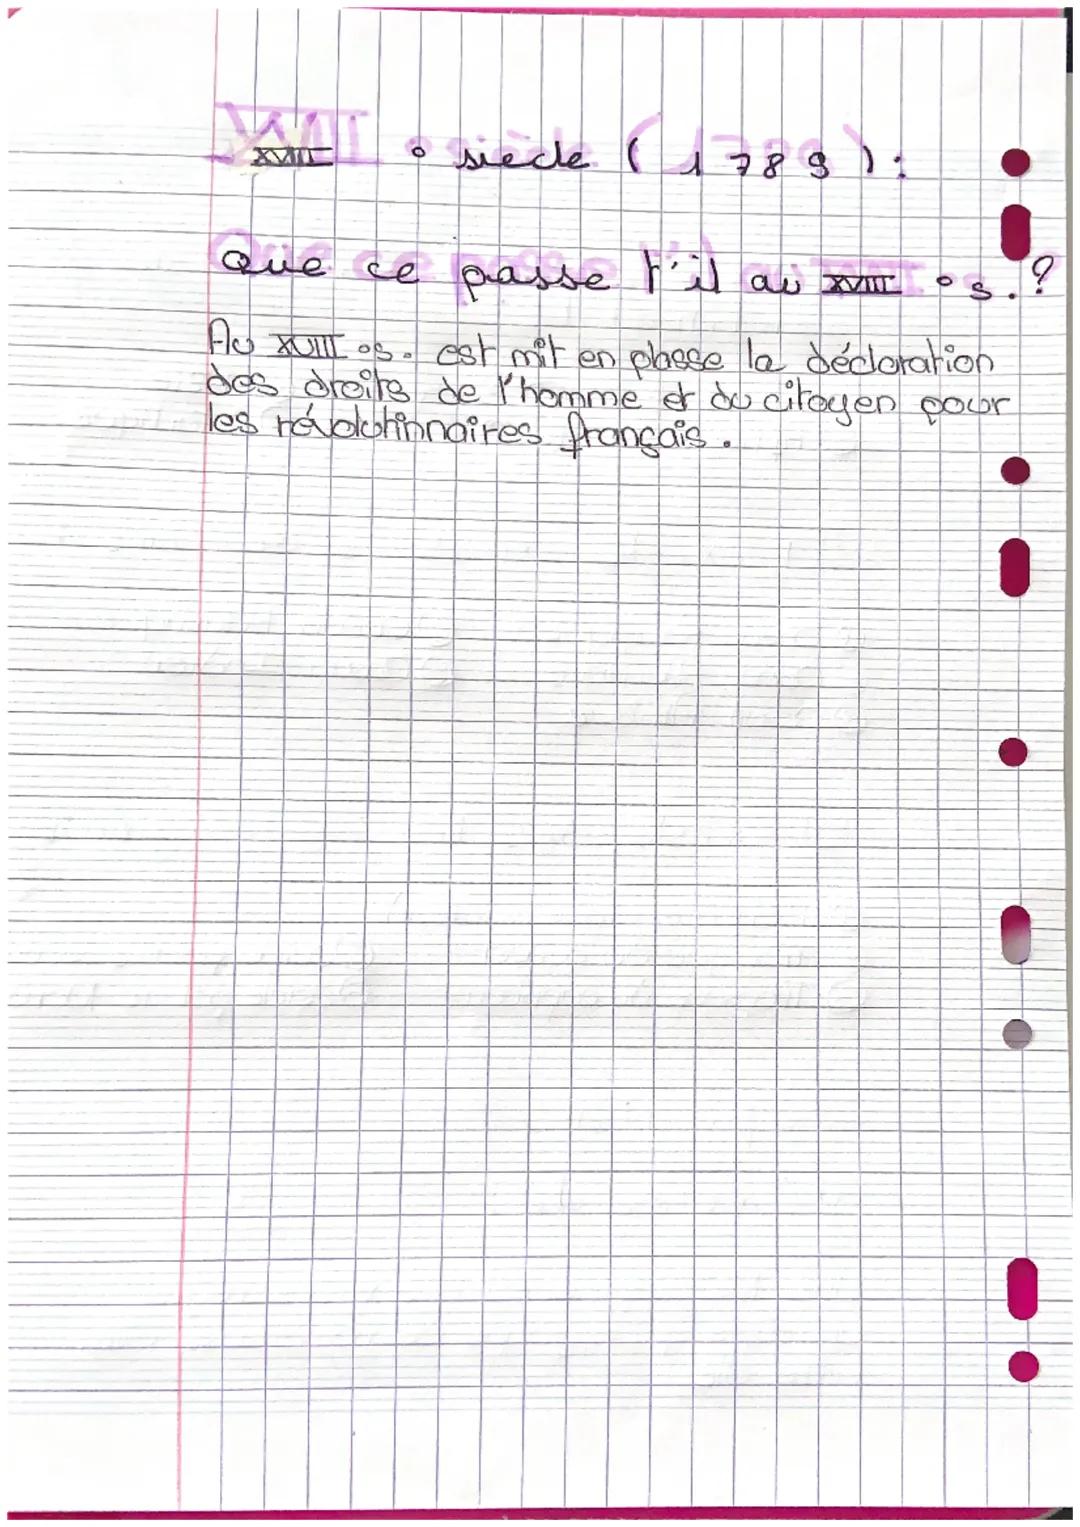 XVIII ° siècle (1789) :
Que ce passe t'il au XVIII ° s. ?
Au XVIII °s. est mit en plasse la déclaration
des droits de l'homme et du citoyen pour
les révolutinnaires français.